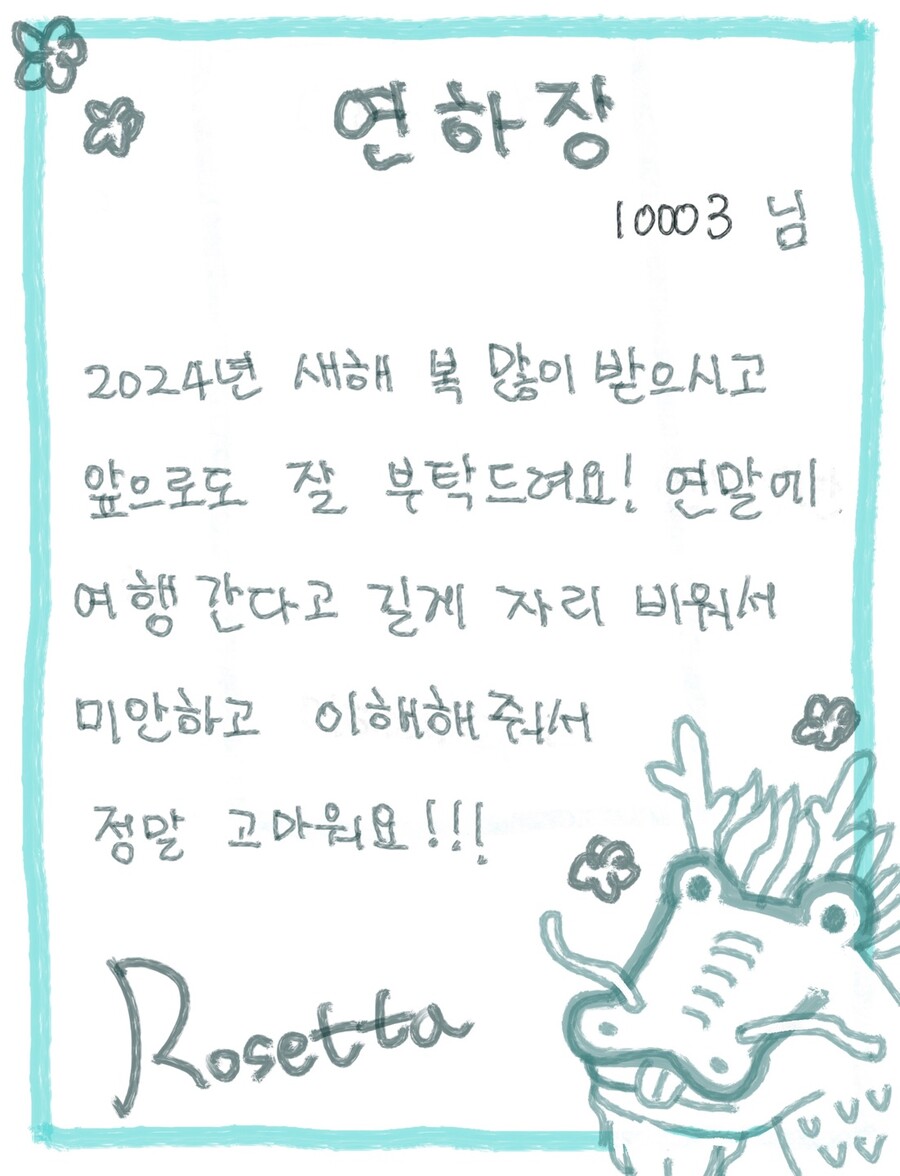 연하장
10003 님
2024년 새해 복 많이 받으시고
앞으로도 잘 부탁드려요! 연말에
여행간다고 길게 자리 비워서
미안하고 이해해줘서
정말 고마워요!!!
Rosetta